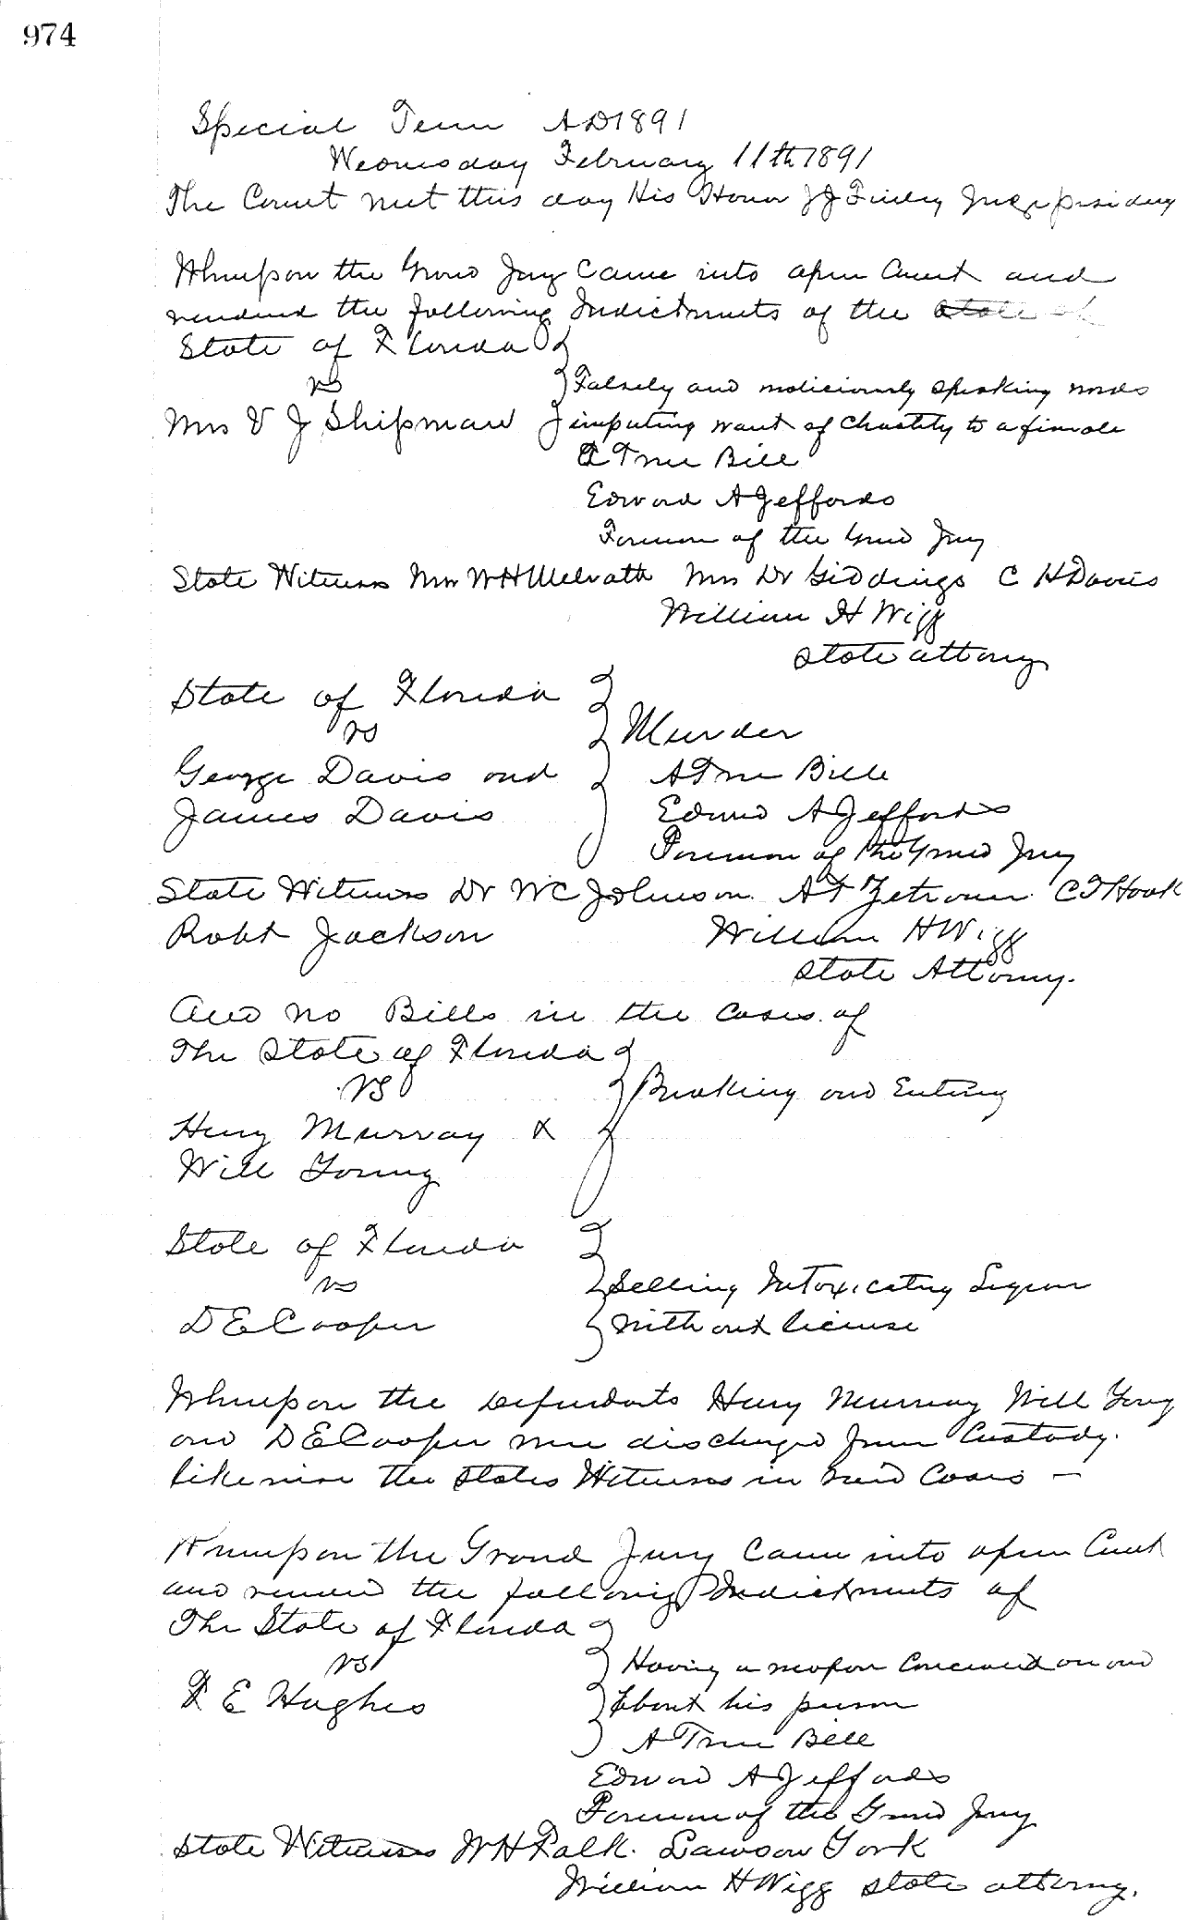 974
Special Term AD 1891
Wednesday February 11th 1891
The Court met this day His Honor J J Finley Judge presiding
Whereupon the Grand Jury Came into open Court and
rendered the following Indictments of the State of
State of Florida
vs
Falsely and maliciously speaking words
Mrs V J Shipman
imputing want of Chastity to a female
A True Bill
Edward A Jeffords
Foreman of the Grand Jury
State Witness Mrs W H McIrath Mrs Dr Giddings C H Davis
William H Wigg
State attorney
State of Florida
vs
Murder
George Davis and
A True Bill
James Davis
Edward A Jeffords
Foreman of the Grand Jury
State Witness Dr W C Johnson. A T Zetrouer. C T Hook
Robt Jackson
William H Wigg
State Attorney.
And no Bills in the Cases of
The State of Florida
vs
Breaking and Entering
Henry Murray &
Will Young
State of Florida
vs
Selling Intoxicating Liquor
D E Cooper
without license
Whereupon the Defendants Henry Murray Will Young
and D E Cooper were discharged from Custody.
likewise the States Witness in said Cases —
Whereupon the Grand Jury Came into open Court
and rendered the following Indictments of
The State of Florida
vs
Having a weapon Concealed on and
F E Hughes
about his person
A True Bill
Edward A Jeffords
Foreman of the Grand Jury
State Witness W H Falk. Lawson York
William H Wigg state attorney.